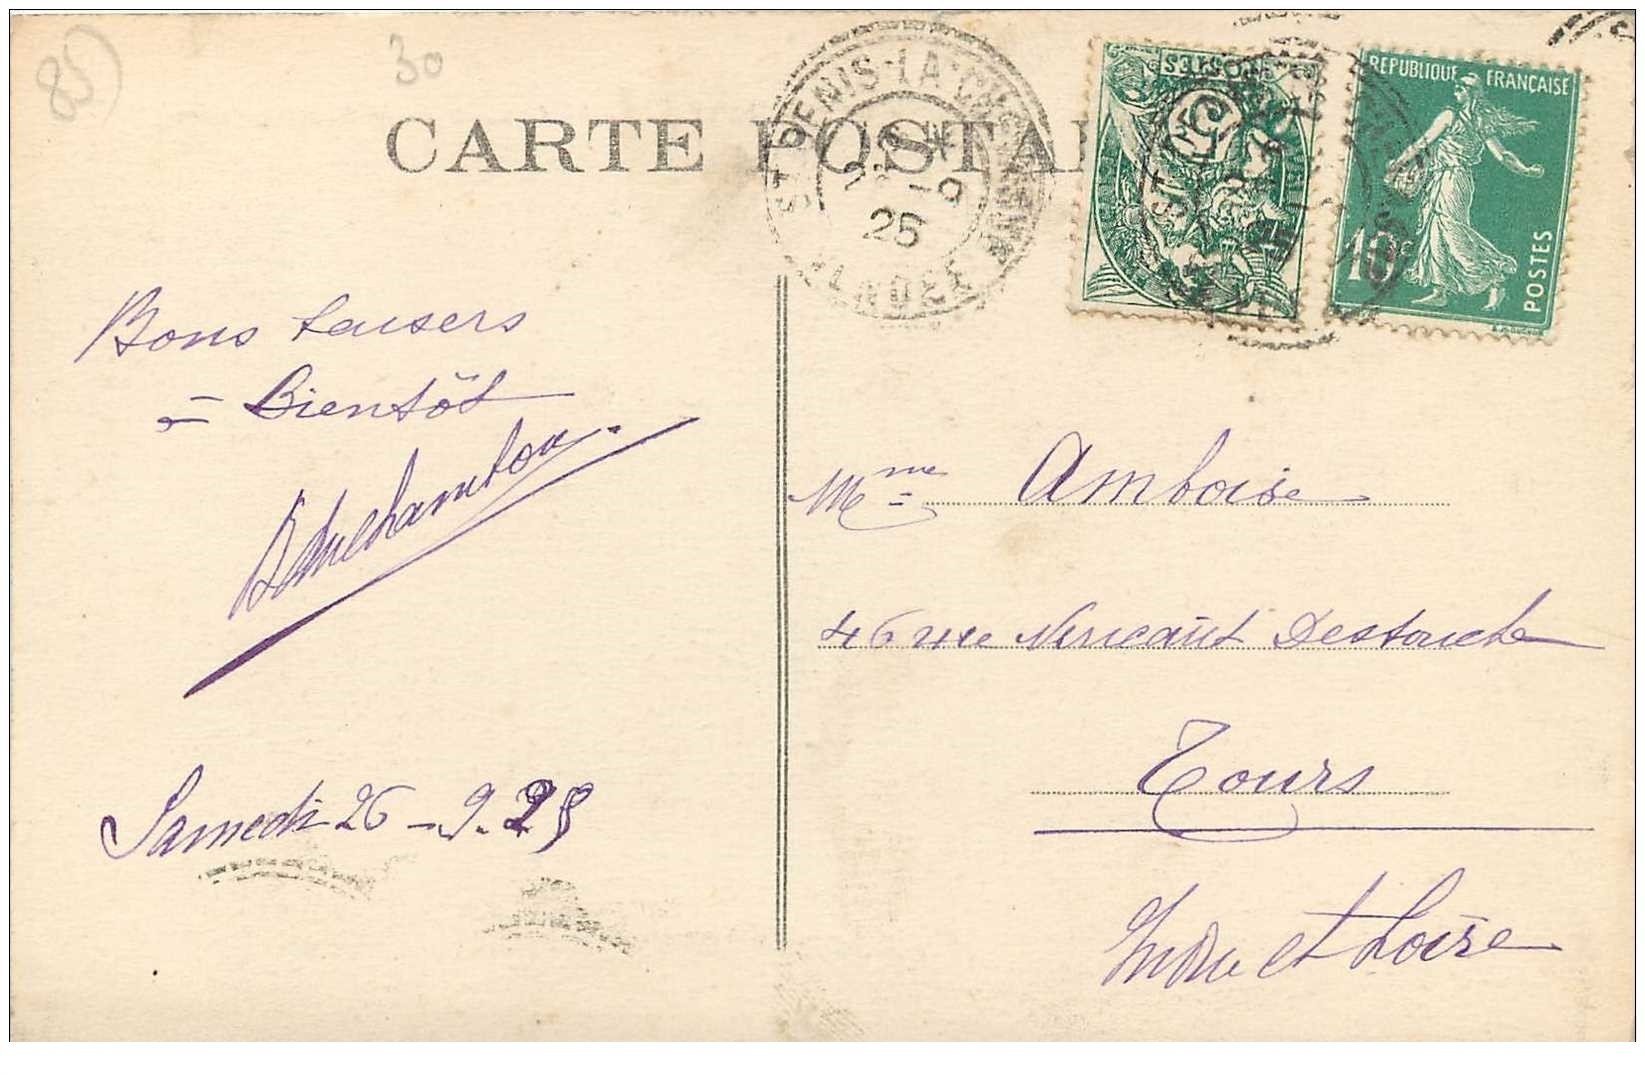 85
30
CARTE POSTA
ST DENIS-LA-CHEVASSE
25
VENDEE
POSTES
5
REPUBLIQUE FRANÇAISE
10c
POSTES
Bons baisers
à Bientôt
Samedi 26-9-25
Mme Amboise
46 rue Nericault Destouche
Tours
Indre et Loire